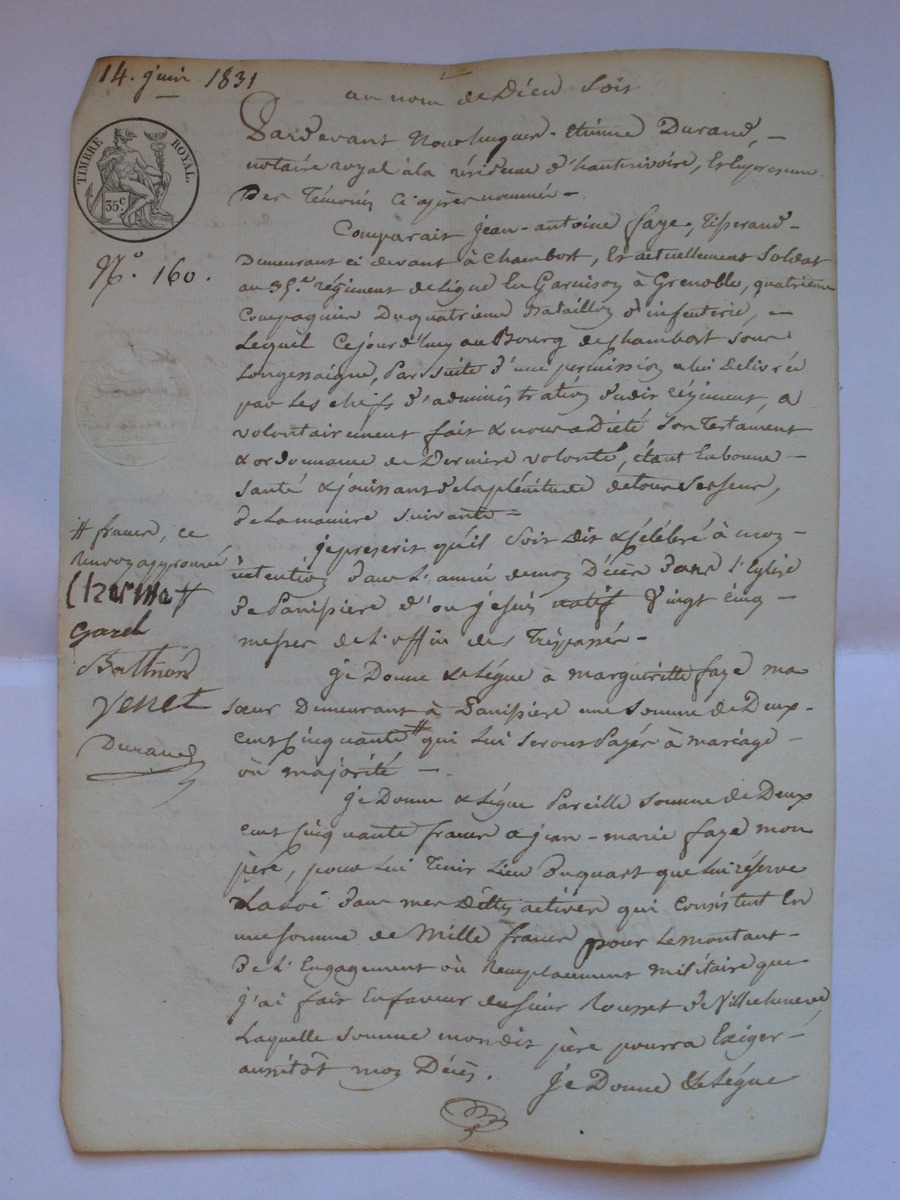 14. juin 1831
au nom de Dieu soit
TIMBRE ROYAL.
35c
N.o 160.
Pardevant Nous hugues-étienne Durand,
notaire royal à la résidence d'hauterivoire, & En presence
Des Témoins Ci après nommés
Comparait jean-antoine faye, Tisserand
Demeurant ci devant à Chambost, & actuellement Soldat
au 35.e régiment de Ligne En Garnison à Grenoble, quatrième
Compagnie Du quatrieme Bataillon d'infenterie,
Lequel Cejourd'huy au Bourg de Chambost sous
Longessaigne, Par suite d'une permission a lui délivrée
par Les chefs d'administration dudit régiment, a
volontairement fait & nous a Dicté Son Testament
& ordonnance de Derniere volonté, étant En bonne
Santé & jouissant de la plénitude de tous ses sens,
de la maniere Suivante
je prescris qu'il Soit Dit & Célébré à mon
intention dans L'année de mon Décès dans l'Eglise
de Panissiere d'ou je suis natif Vingt cinq
messes de L'office des Trépassés
je Donne & Légue a margueritte faye ma
soeur Demeurant à Panissiere une Somme de Deux
cent Cinquante # qui Lui seront Payés à mariage
où majorité
je Donne & Légue Pareille Somme de Deux
cent Cinquante francs a jean-marie faye mon
père, pour Lui Tenir Lieu Du quart que Lui réserve
La Loi dans mes dettes actives qui Consistent En
une Somme de Mille francs pour Le montant
de L'Engagement où Remplacement militaire que
j'ai fait En faveur du Sieur Rousset de Villecheneve,
Laquelle Somme mondit père pourra Exiger
aussitôt mon Décès. je Donne & Légue
# francs, ce
renvoy approuvé
Garel
Venet
Durand